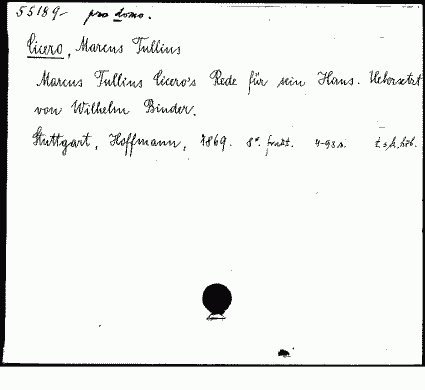 55189 pro domo.
Cicero, Marcus Tullius
Marcus Tullius Cicero's Rede für sein Haus. Uebersetzt
von Wilhelm Binder.
Stuttgart, Hoffmann, 1869. 8°. 4-93 s.